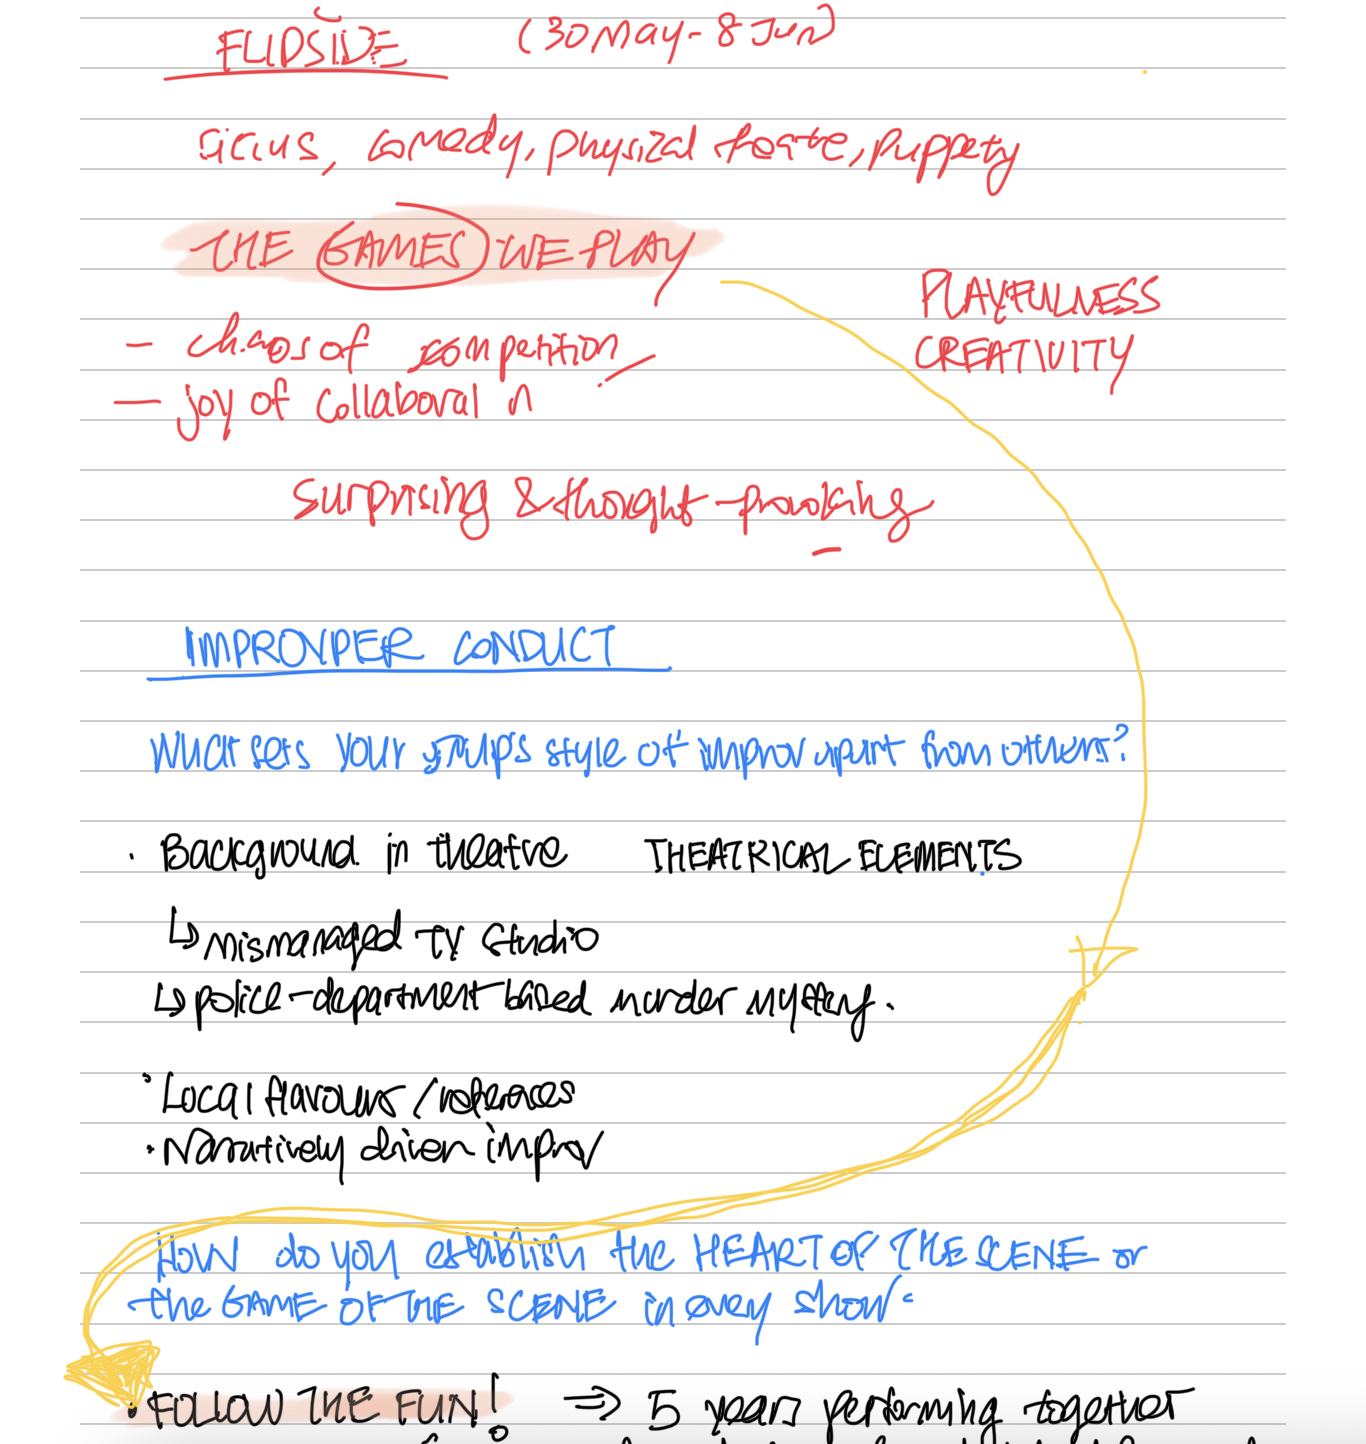 FLIPSIDE (30 May - 8 Jun)
circus, comedy, physical theatre, puppetry
THE GAMES WE PLAY
PLAYFULNESS
CREATIVITY
- chaos of competition
- joy of collaboration
surprising & thought-provoking
IMPROVPER CONDUCT
What sets your group's style of improv apart from others?
· Background in theatre THEATRICAL ELEMENTS
↳ mismanaged TV studio
↳ police-department based murder mystery.
· Local flavours / references
· Narratively driven improv
How do you establish the HEART OF THE SCENE or
the GAME OF THE SCENE in every show
· FOLLOW THE FUN! ⇒ 5 years performing together